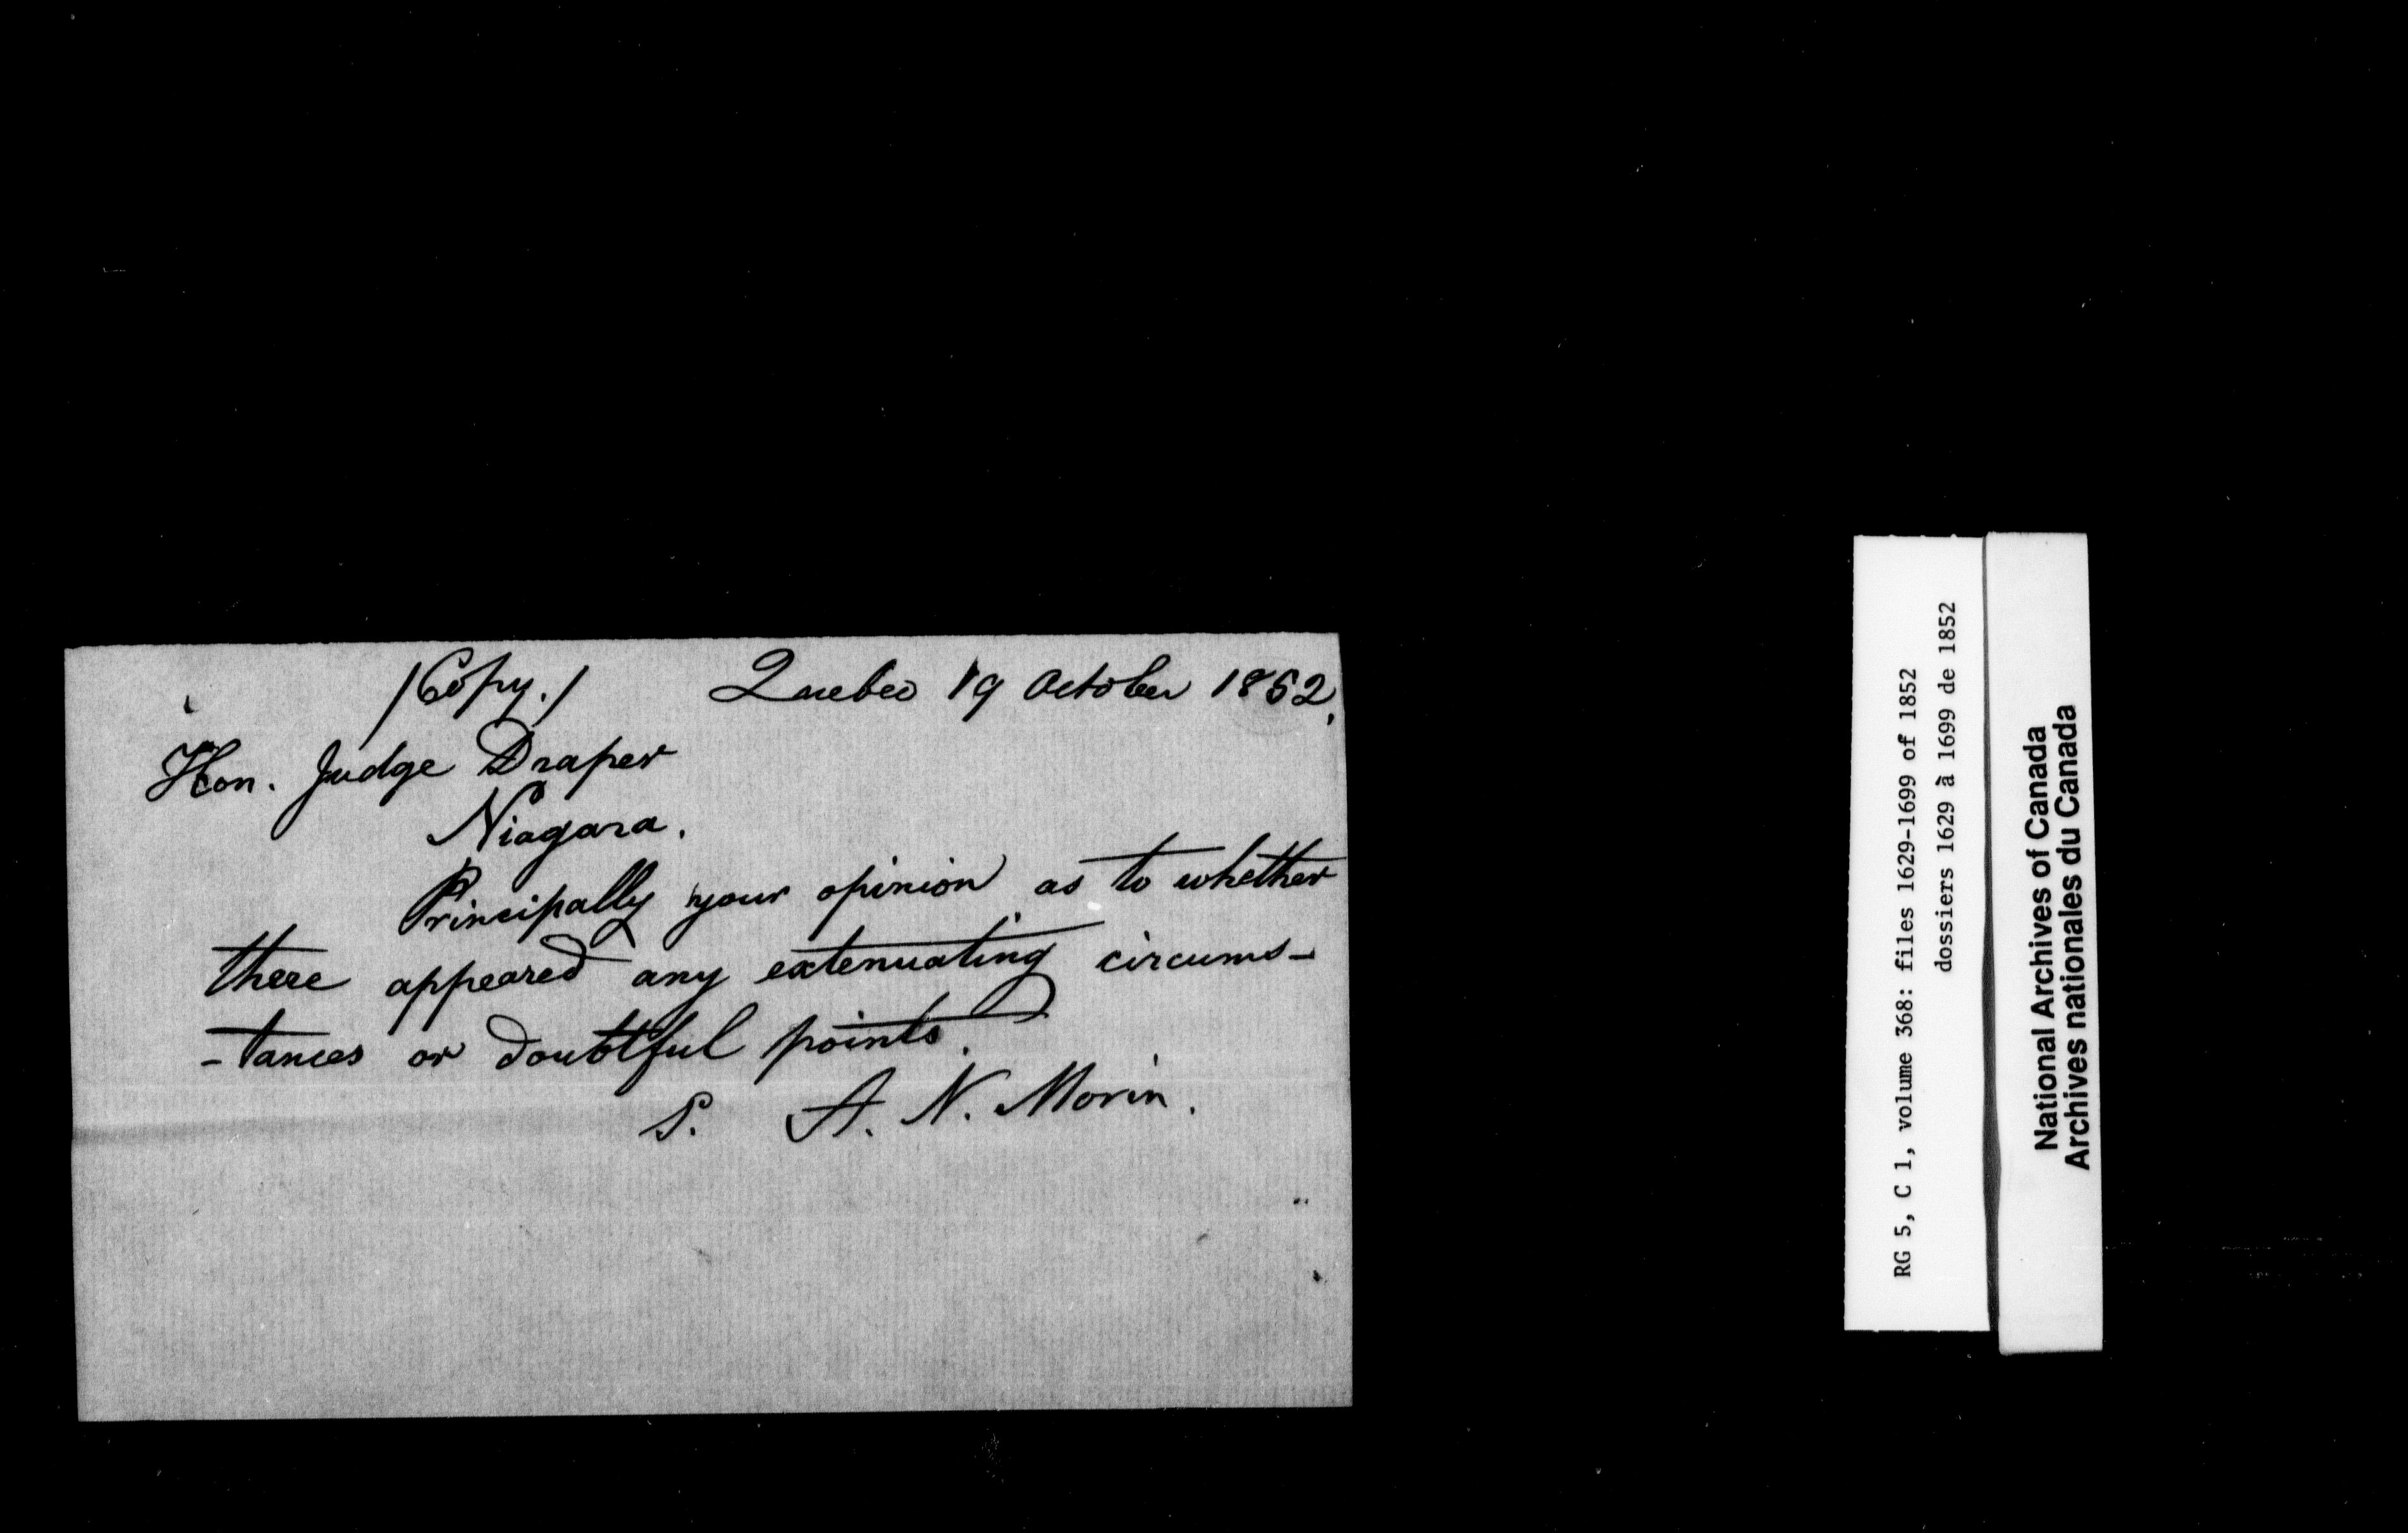 /Copy./ Quebec 19 October 1852.
Hon. Judge Draper
Niagara.
Principally your opinion as to whether
there appeared any extenuating circums-
-tances or doubtful points.
S. A. N. Morin.
RG 5, C 1, volume 368: files 1629-1699 of 1852
dossiers 1629 à 1699 de 1852
National Archives of Canada
Archives nationales du Canada